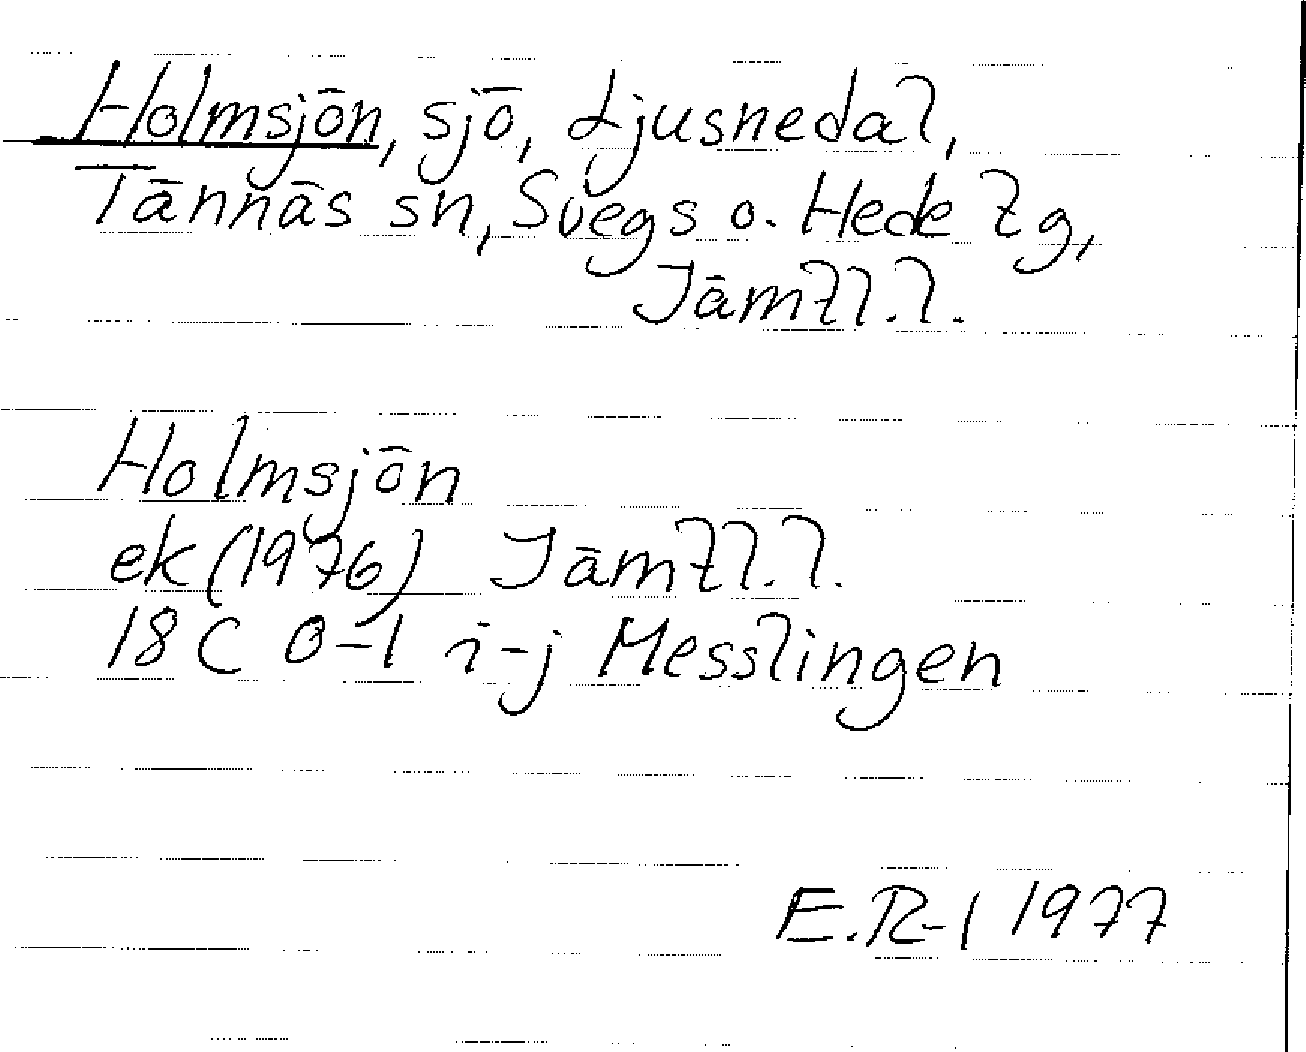 Holmsjön, sjö, Ljusnedal,
Tännäs sn, Svegs o. Hede tg,
Jämtl.l.
Holmsjön
ek (1976) Jämtl.l.
18C 0-1 i-j Messlingen
E.R-l 1977